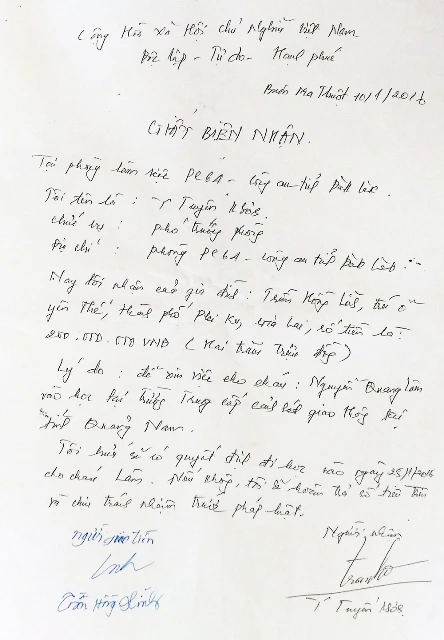 Cộng Hòa xã Hội chủ Nghĩa Việt Nam
Độc lập - Tự do - Hạnh phúc
Buôn Ma Thuột 10/1/2016
GIẤY BIÊN NHẬN.
Tại phòng làm việc PC61 - Công an tỉnh Đăk Lăk.
Tôi tên là : Y Tuyến Ksơr.
chức vụ : phó trưởng phòng
Địa chỉ : phòng PC61 - công an tỉnh Đăk Lăk.
Nay tôi nhận của gia đình : Trần Hồng trú ở
yên Thế, thành phố Plei Ku, Gia Lai, số tiền là:
250.000.000 VNĐ ( Hai trăm triệu đồng )
Lý do : để xin việc cho cháu : Nguyễn Quang Lâm
vào học tại trường Trung cấp cảnh sát giao thông tại
tỉnh Quảng Nam.
Tôi hứa sẽ có quyết định đi học vào ngày 25/1/2016
cho cháu Lâm. Nếu không, tôi sẽ hoàn trả số tiền trên
và chịu trách nhiệm trước pháp luật.
người giao tiền
Người nhận
Trần Hồng
Y Tuyến Ksơr